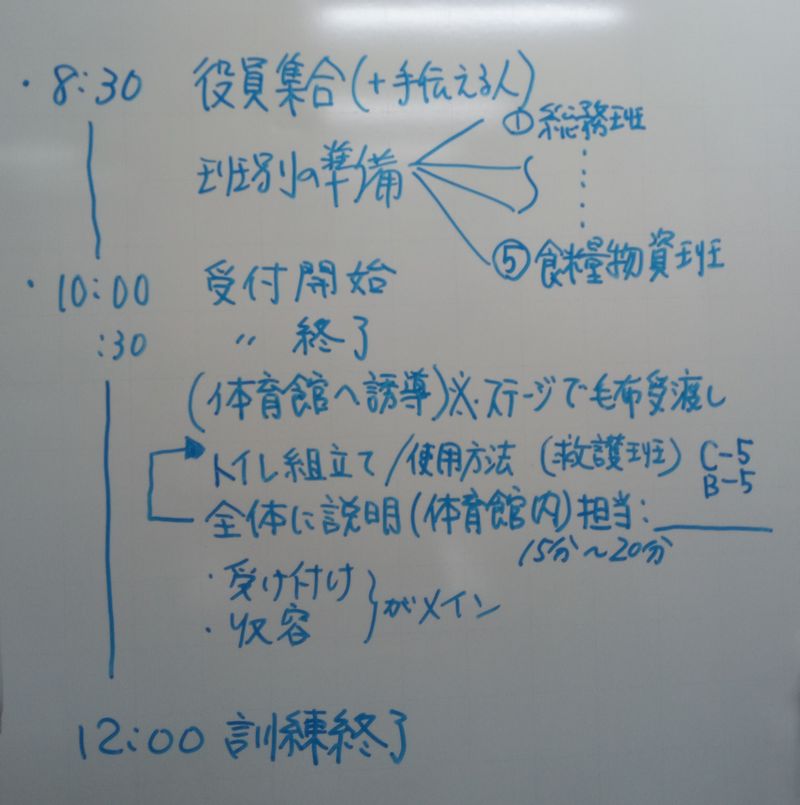 ・8:30 役員集合(+手伝える人)
①総務班
班別の準備
⑤食糧物資班
・10:00 受付開始
:30 〃 終了
(体育館へ誘導)※・ステージで毛布受渡し
トイレ組立て/使用方法 (救護班) C-5
B-5
全体に説明(体育館内)担当:
15分〜20分
・受け付け
・収容
がメイン
12:00 訓練終了